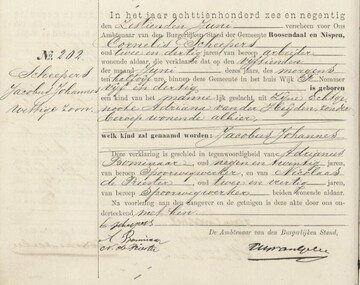 In het jaar achttienhonderd zes en negentig
den Zestienden Juni verscheen voor Ons
Ambtenaar van den Burgerlijken Stand der Gemeente Roosendaal en Nispen,
Cornelis Scheepers
oud twee en dertig jaren, van beroep arbeider
wonende alhier, die verklaarde dat op den vijftienden
der maand Juni dezes jaars, des morgens
ten uur, binnen deze Gemeente in het huis Wijk Nommer
vijf en dertig is geboren
een kind van het manne lijk geslacht uit Zijne Echtge
noote Adriana van der Heijden, zonder
beroep wonende alhier
welk kind zal genaamd worden: Jacobus Johannes
Deze verklaring is geschied in tegenwoordigheid van Adrijanus
oud negen en twintig jaren,
van beroep Spoorwegwerker en van Nicolaas
de Rooster, oud twee en veertig jaren,
van beroep Spoorwegwerker beiden wonende alhier.
Na voorlezing aan den aangever en de getuigen is deze akte door ons onder-
teekend, met hen
De Ambtenaar van den Burgerlijken Stand,
No. 202
Scheepers
Jacobus Johannes
wettige zoon.